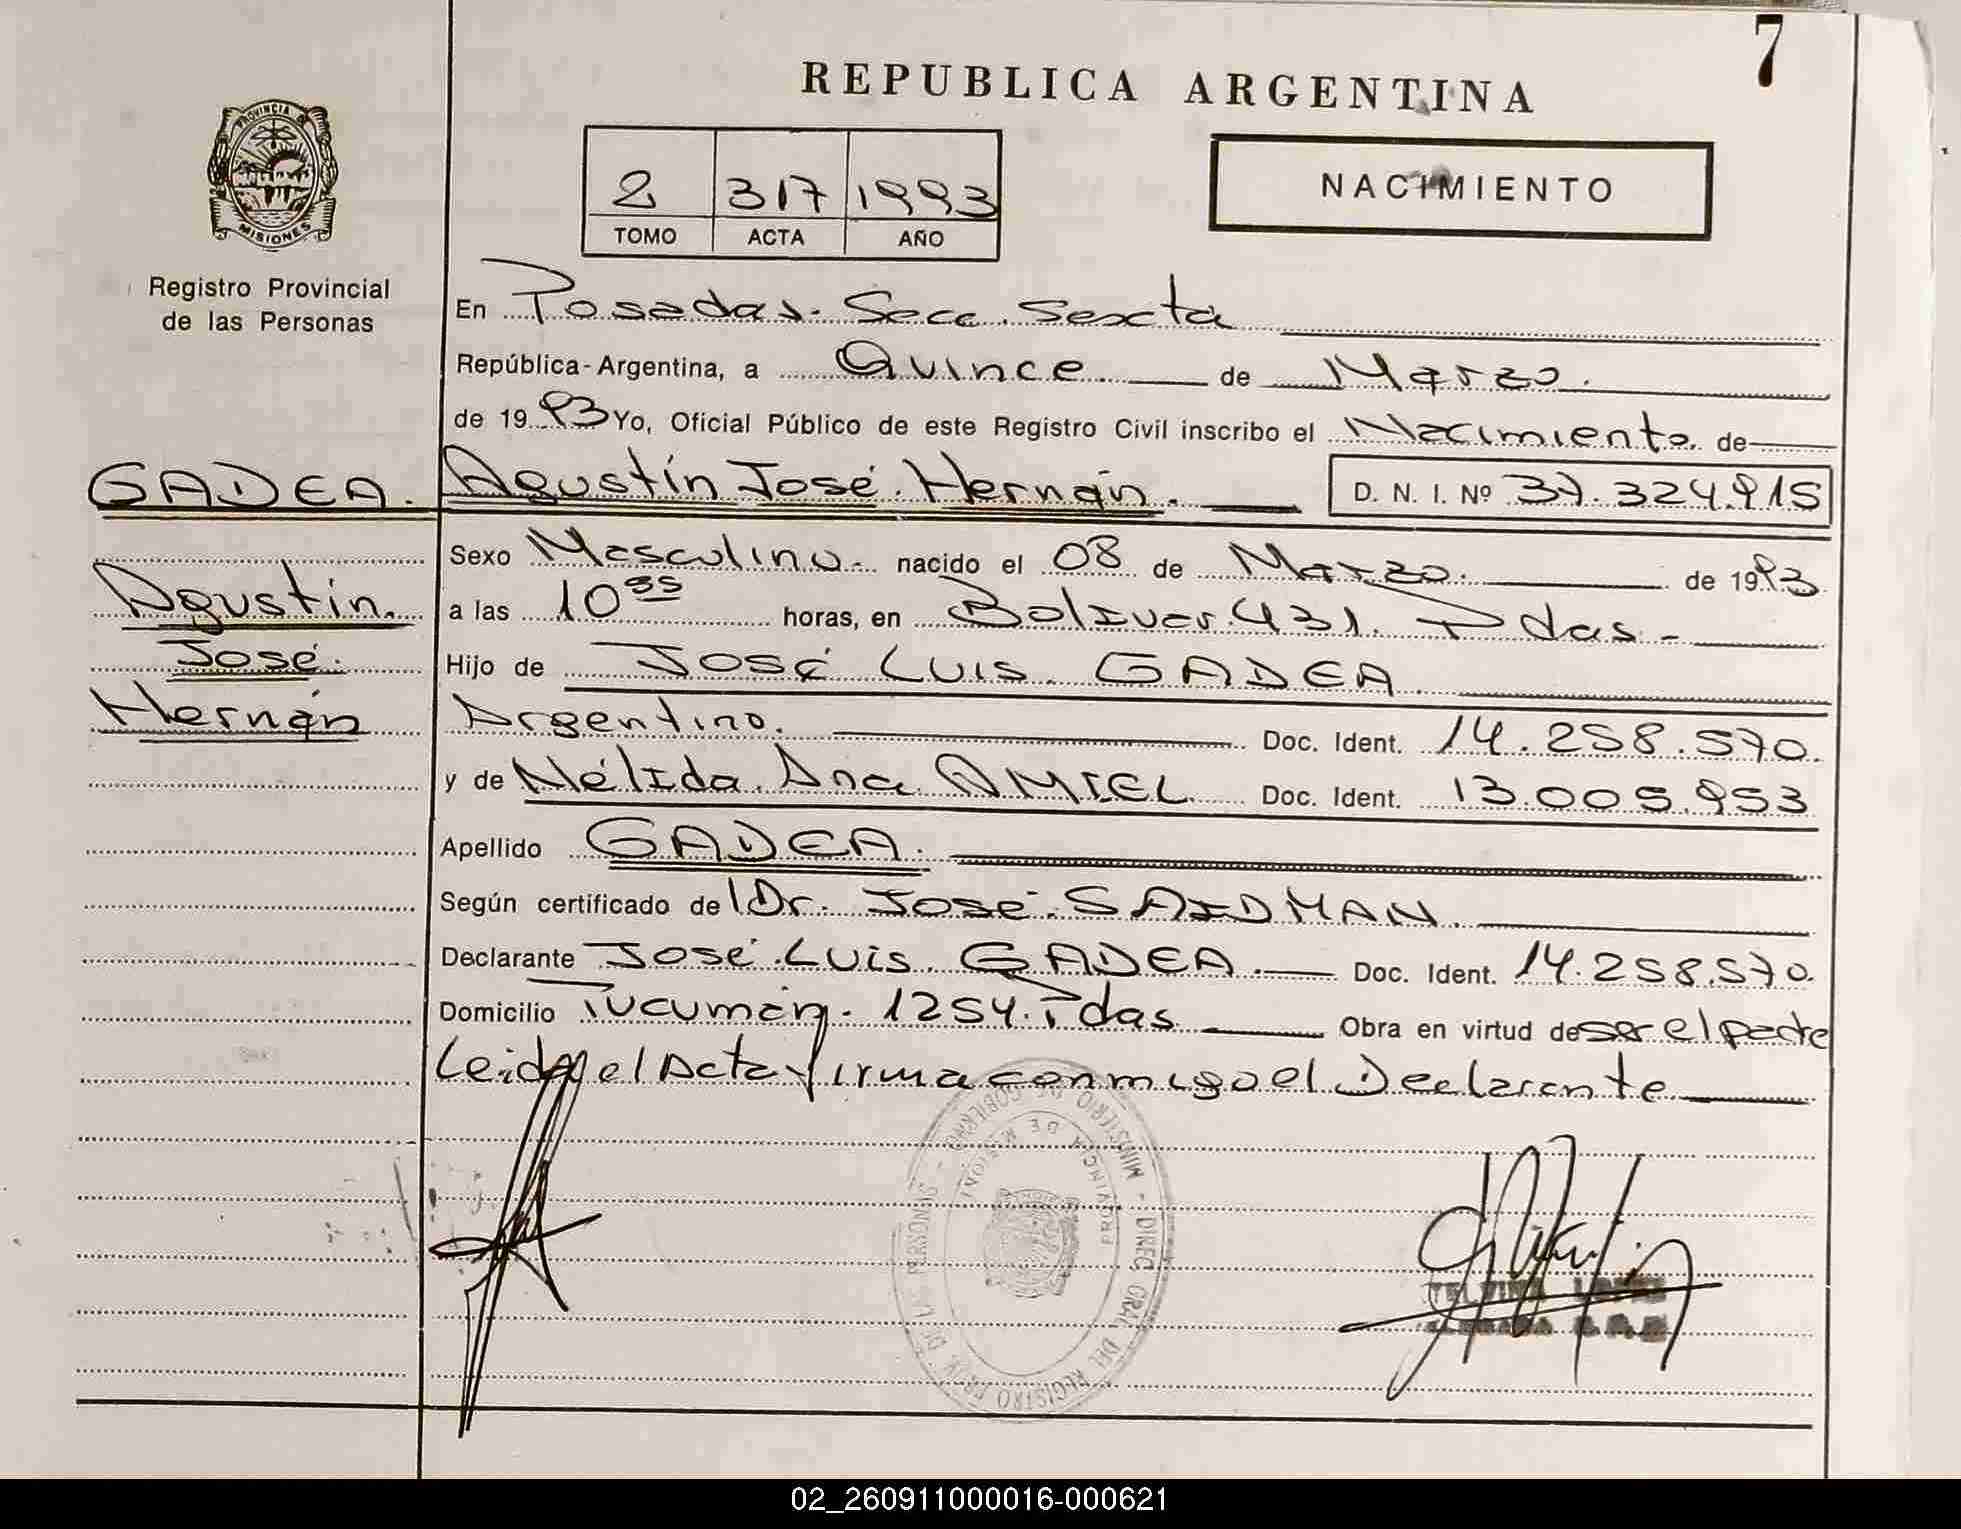 7
REPUBLICA ARGENTINA
PROVINCIA DE
MISIONES
Registro Provincial
de las Personas
2 317 1993
TOMO ACTA AÑO
NACIMIENTO
En Posadas. Secc. Sexta
República-Argentina, a Quince de Marzo.
de 1993 Yo, Oficial Público de este Registro Civil inscribo el Nacimiento de
GADEA. Agustín José Hernán. D. N. I. Nº 37.324.915
Sexo Masculino. nacido el 08 de Marzo. de 1993
Agustín. a las 10 35 horas, en Bolivar 431. Pdas-
José. Hijo de José Luis. GADEA
Hernán Argentino. Doc. Ident. 14.258.570.
y de Nélida Ana AMIEL Doc. Ident. 13.005.953
Apellido GADEA.
Según certificado del Dr. José SAIDMAN
Declarante José Luis GADEA. Doc. Ident. 14.258.570.
Domicilio Tucumán. 1254. Pdas Obra en virtud de ser el padre
Leida el Acta firma conmigo el Declarante
MINISTERIO DE GOBIERNO - DIREC. GRAL. DEL REGISTRO PROV. DE LAS PERSONAS -
PROVINCIA DE MISIONES
02_260911000016-000621